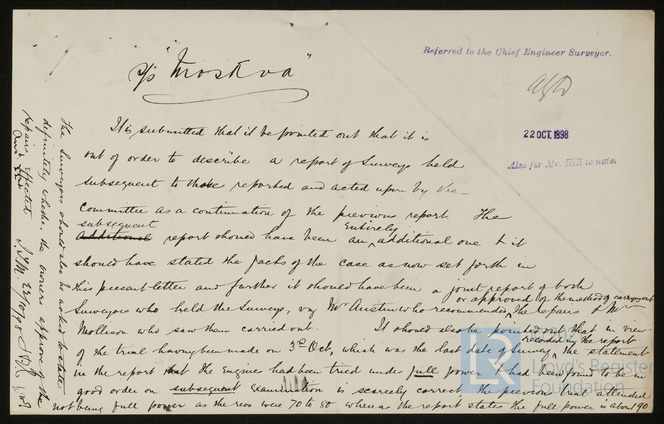 Referred to the Chief Engineer Surveyor.
S/S "Moskva"
22 OCT. 1898
Also for Mr. Hill to note.
It is submitted that it be pointed out that it is
out of order to describe a report of Surveys held
subsequent to those reported and acted upon by the
Committee as a continuation of the previous report. The
subsequent
additional report should have been an entirely additional one & it
should have stated the facts of the case as now set forth in
this present letter and further it should have been a joint report of both
Surveyors who held the Surveys, viz Mr Austin who recommended or approved of the method of carrying out the repairs & Mr
Mollison who saw them carried out. It should also be pointed out that in view
of the trial having been made on 3rd Oct, which was the last date of Survey recorded in the report, the statement
in the report that the Engines had been tried under full power & had been found to be in
good order on subsequent examination is scarcely correct, the previous trial attended
not being full power as the revs were 70 to 80 whereas the report states the full power is about 90
The Surveyors should also be asked to state
definitely whether the owners approve of the
repairs effected
22/10/98
LR
Lloyd's Register
Foundation